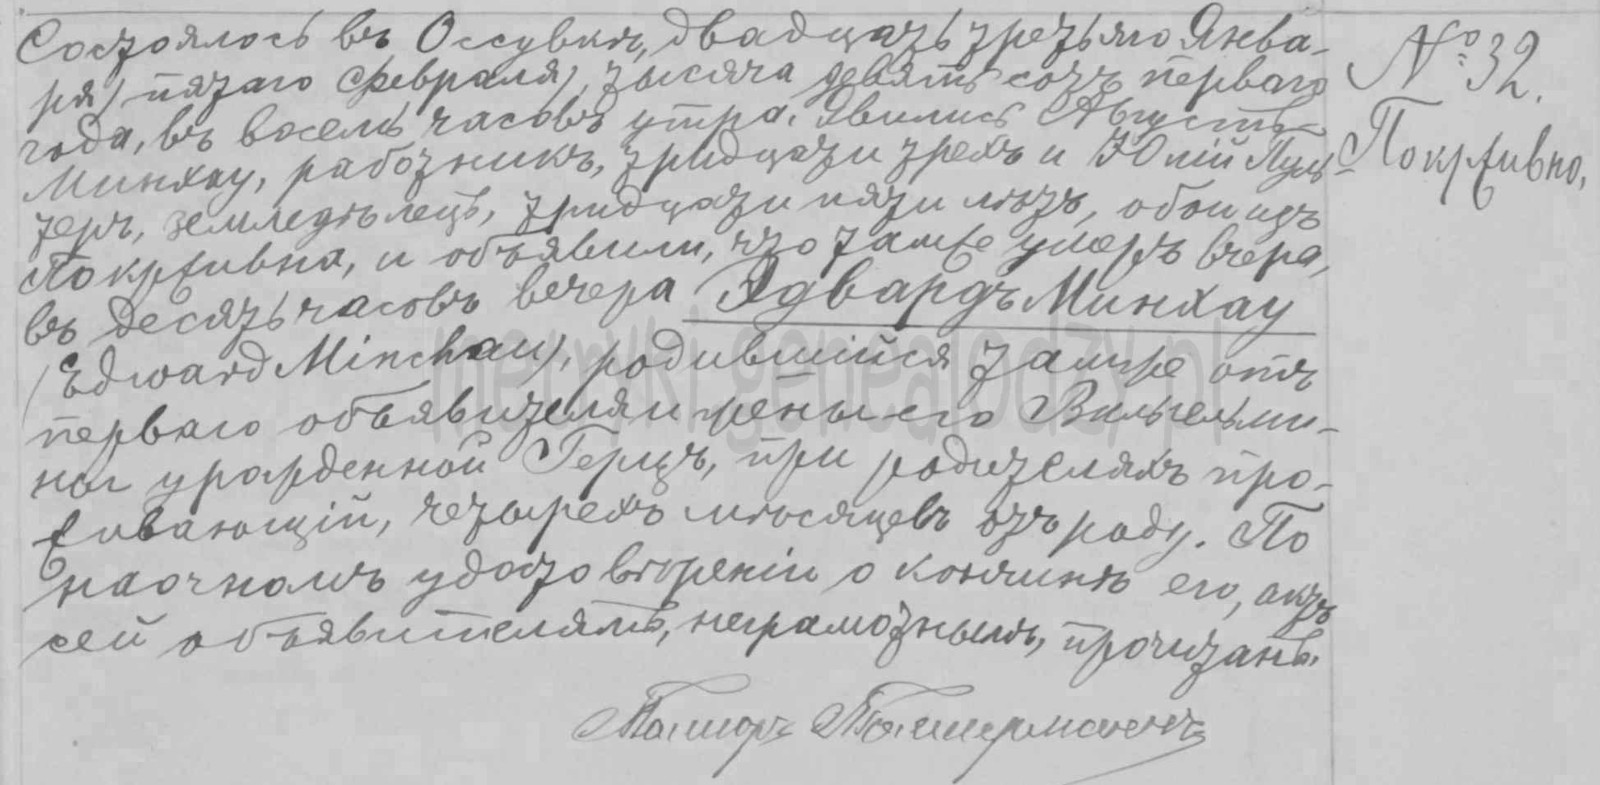 Состоялось въ Оссувкѣ, двадцать третьяго Янва-
ря/пятаго Февраля/, тысяча девятьсотъ перваго
года, въ восемь часовъ утра. Явились Августъ
Минхау, работникъ, тридцати трехъ и Юлій Пул-
теръ, земледѣлецъ, тридцати пяти лѣтъ, обои изъ
Покрживна, и объявили, что тамже умеръ вчера,
въ десять часовъ вечера Эдвардъ Минхау
/Edward Minchau/, родившійся тамже отъ
перваго объявителя и жены его Вильгельми-
ны урожденной Герцъ, при родителяхъ про-
живающій, четырехъ мѣсяцевъ отъ роду. По
наочномъ удостовѣреніи о кончинѣ его, актъ
сей объявителямъ, неграмотнымъ, прочитанъ.
Пасторъ
№ 32.
Покрживно,
metryki.genealodzy.pl